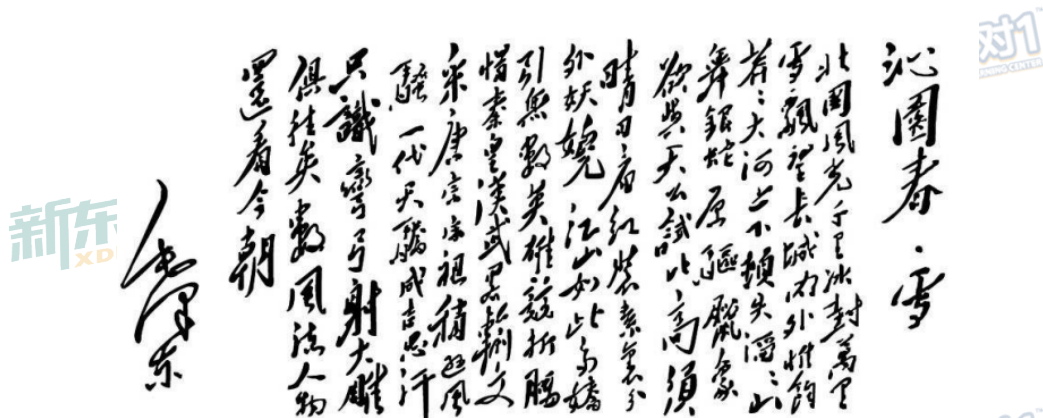 沁園春·雪
北國風光千里冰封萬里
雪飄望長城内外惟餘
莽々大河上下頓失滔々山
舞銀蛇原驅臘象
欲與天公試比高須
晴日看紅裝素裹分
外妖嬈江山如此多嬌
引無數英雄競折腰
惜秦皇漢武略輸文
采唐宗宋祖稍遜風
騷一代天驕成吉思汗
只識彎弓射大雕
俱往矣數風流人物
還看今朝
毛澤東
新东
XD
对1
CENTER